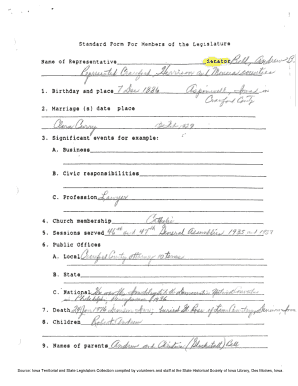 Standard Form For Members of the Legislature
Name of Representative Senator Bell, Andrew B.
Represented Crawford Harrison and Monona counties
1. Birthday and place 7 Dec 1886 Aspinwall, Iowa in
Crawford Cty.
2. Marriage (s) date place
Clara
3. Significant events for example:
A. Business
B. Civic responsibilities
C. Profession Lawyer
4. Church membership Catholic
5. Sessions served 46th and 47th General Assemblies 1935 and 1937
6. Public Offices
A. Local Crawford County Attorney terms
B. State
C. National
Philadelphia, Pennsylvania 1936
7. Death
8. Children Robert Andrew
9. Names of parents Andrew and Bell
Source: Iowa Territorial and State Legislators Collection compiled by volunteers and staff at the State Historical Society of Iowa Library, Des Moines, Iowa.